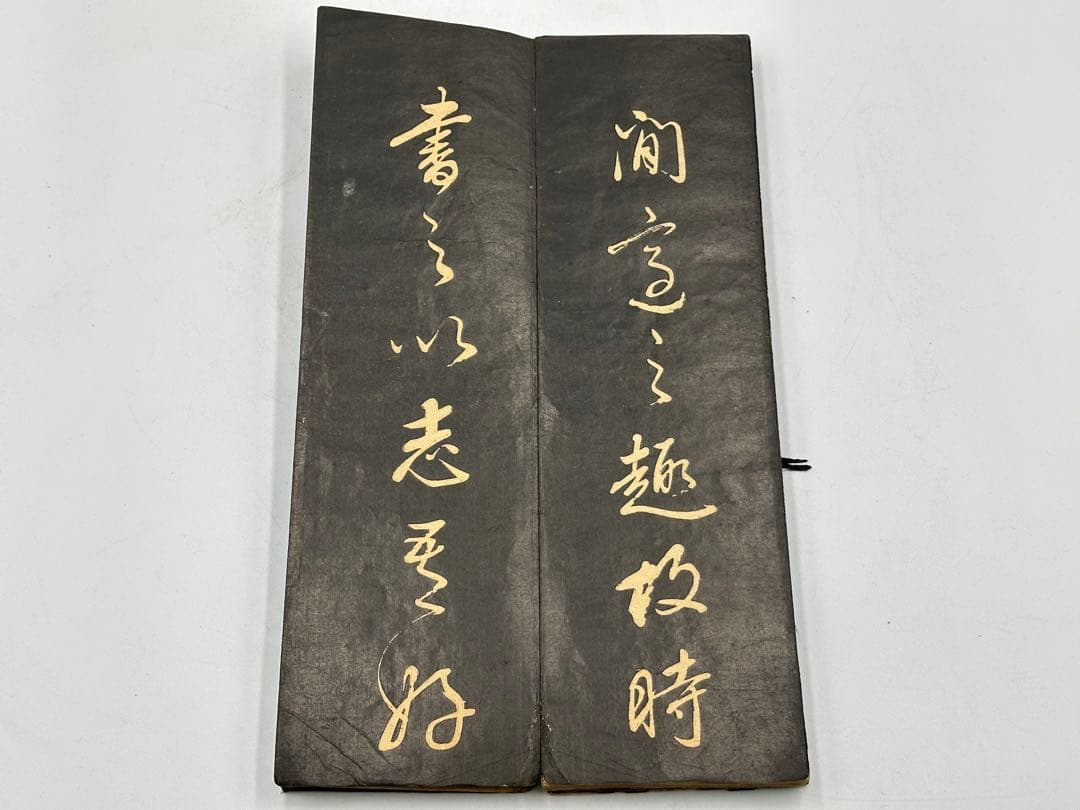 閒適之趣故時
書之以志吾好